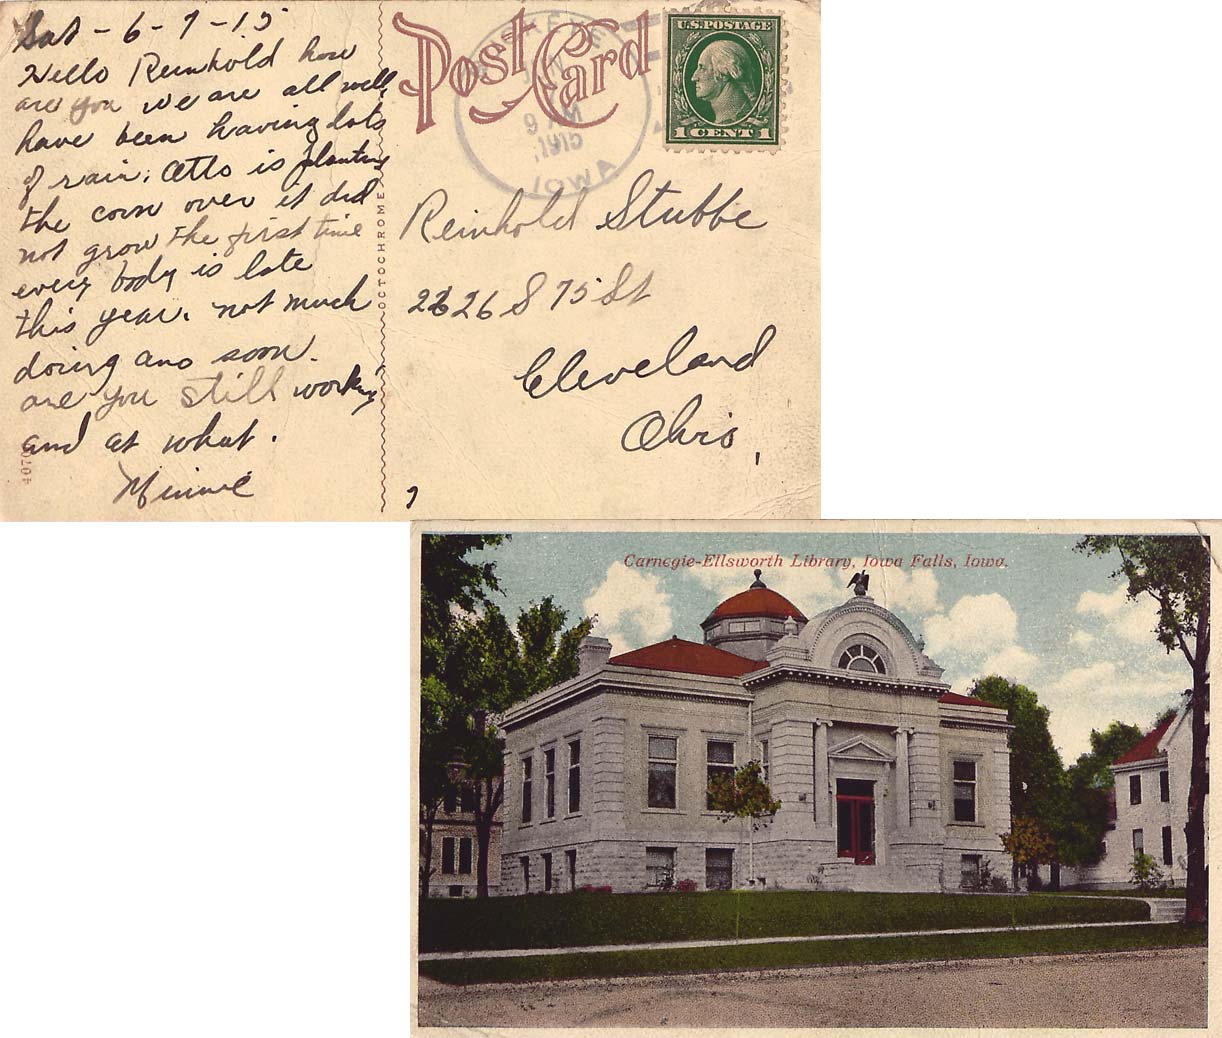 Sat - 6-7-15
Hello Reinhold how
are you we are all well,
have been having lots
of rain, Otto is planting
the corn over it did
not grow the first time
every body is late
this year. not much
doing ano soon.
are you still working
and at what.
Minnie
4070
OCTOCHROME
Post Card
JUN
9 AM
1915
IOWA
U.S. POSTAGE
1 CENT 1
Reinhold Stubbe
2226 S 75 St
Cleveland
Ohio,
Carnegie-Ellsworth Library, Iowa Falls, Iowa.